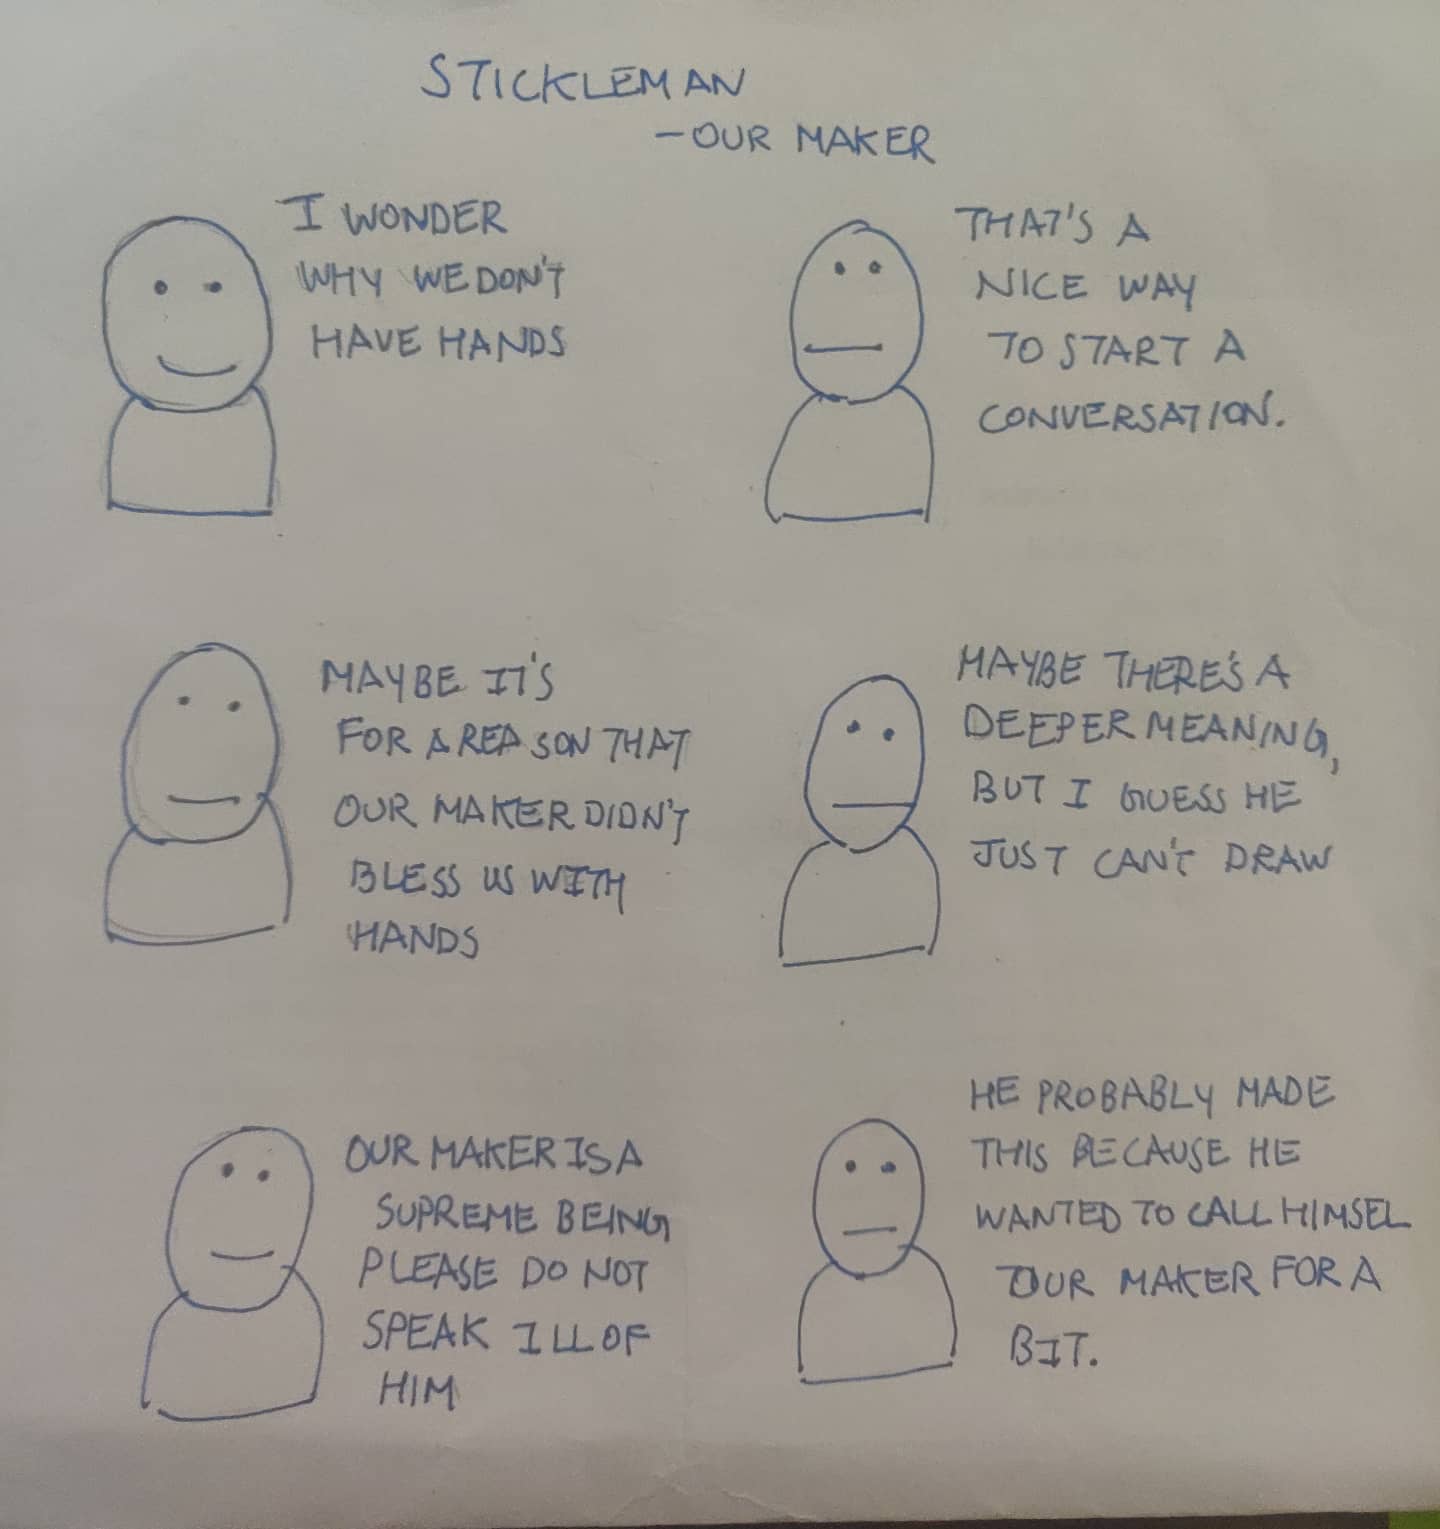 STICKLEMAN
-OUR MAKER
I WONDER
WHY WE DON'T
HAVE HANDS
THAT'S A
NICE WAY
TO START A
CONVERSATION.
MAYBE IT'S
FOR A REASON THAT
OUR MAKER DIDN'T
BLESS US WITH
HANDS
MAYBE THERE'S A
DEEPER MEANING,
BUT I GUESS HE
JUST CAN'T DRAW
OUR MAKER IS A
SUPREME BEING
PLEASE DO NOT
SPEAK ILL OF
HIM
HE PROBABLY MADE
THIS BECAUSE HE
WANTED TO CALL HIMSEL
OUR MAKER FOR A
BIT.